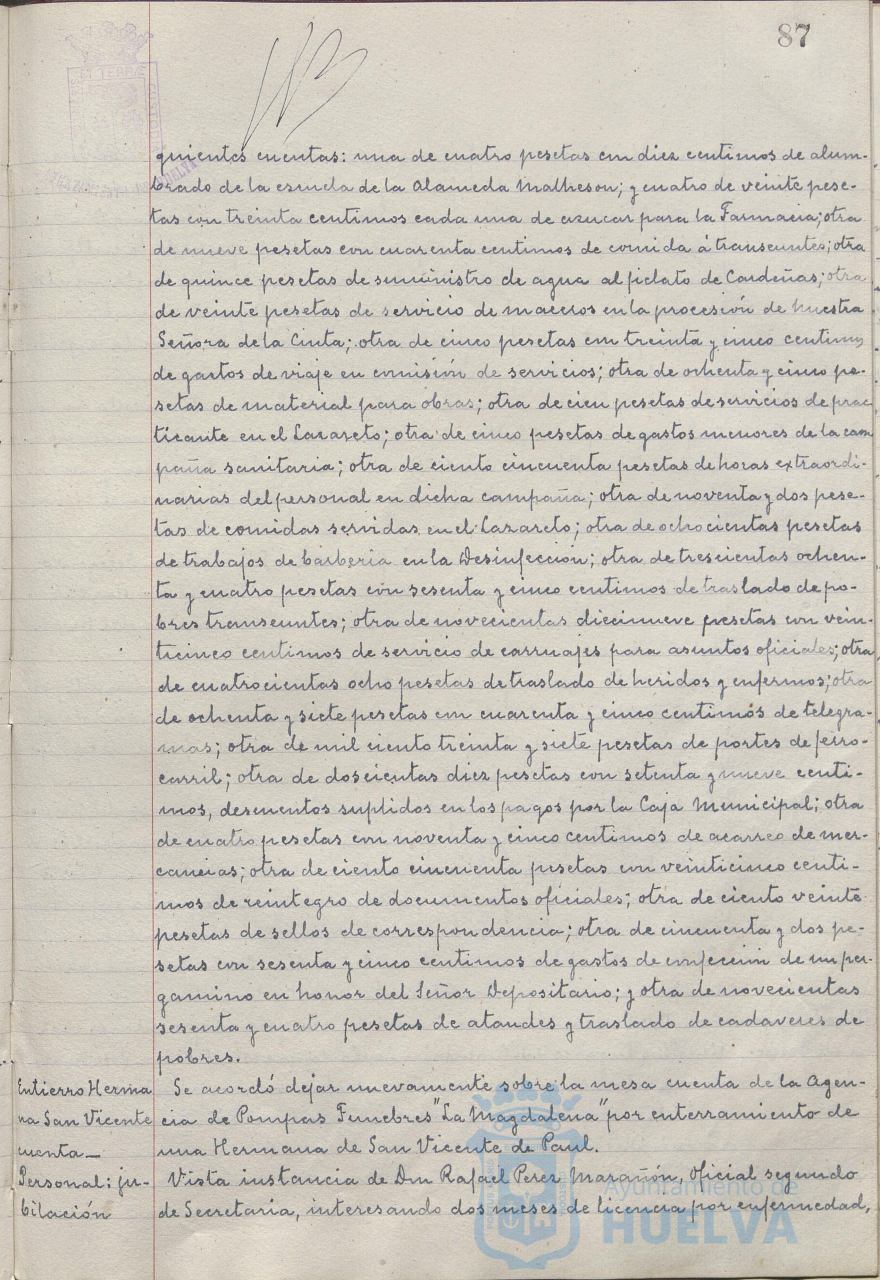 87
guientes cuentas: una de cuatro pesetas con diez centimos de alum-
brado de la escuela de la Alameda Malheson; y cuatro de veinte pese-
tas con treinta centimos cada una de azucar para la Farmacia; otra
de nueve pesetas con cuarenta centimos de comida á transeuntes; otra
de quince pesetas de suministro de agua al fielato de Cardeñas; otra
de veinte pesetas de servicio de maceros en la procesión de Nuestra
Señora de la Cinta; otra de cinco pesetas con treinta y cinco centimos
de gastos de viaje en comisión de servicios; otra de ochenta y cinco pe-
setas de material para obras; otra de cien pesetas de servicios de prac
ticante en el Lazareto; otra de cinco pesetas de gastos menores de la cam
paña sanitaria; otra de ciento cincuenta pesetas de horas extraordi-
narias del personal en dicha campaña; otra de noventa y dos pese-
tas de comidas servidas en el Lazareto; otra de ochocientas pesetas
de trabajos de barberia en la Desinfección; otra de trescientas ochen-
ta y cuatro pesetas con sesenta y cinco centimos de traslado de po-
bres transeuntes; otra de novecientas diecinueve pesetas con vein-
ticinco centimos de servicio de carruajes para asuntos oficiales; otra
de cuatrocientas ocho pesetas de traslado de heridos y enfermos; otra
de ochenta y siete pesetas con cuarenta y cinco centimos de telegra-
mas; otra de mil ciento treinta y siete pesetas de portes de ferro-
carril; otra de doscientas diez pesetas con setenta y nueve centi-
mos, descuentos suplidos en los pagos por la Caja Municipal; otra
de cuatro pesetas con noventa y cinco centimos de acarreo de mer-
cancias; otra de ciento cincuenta pesetas con veinticinco centi-
mos de reintegro de documentos oficiales; otra de ciento veinte
pesetas de sellos de correspondencia; otra de cincuenta y dos pe-
setas con sesenta y cinco centimos de gastos de confección de un per-
gamino en honor del Señor Depositario; y otra de novecientas
sesenta y cuatro pesetas de ataudes y traslado de cadaveres de
pobres.
Entierro Herma
na San Vicente
cuenta—
Se acordó dejar nuevamente sobre la mesa cuenta de la Agen-
cia de Pompas Funebres "La Magdalena" por enterramiento de
una Hermana de San Vicente de Paul.
Personal: ju-
bilación
Vista instancia de Don Rafael Perez Marañón, oficial segundo
de Secretaria, interesando dos meses de licencia por enfermedad,
Ayuntamiento de
HUELVA